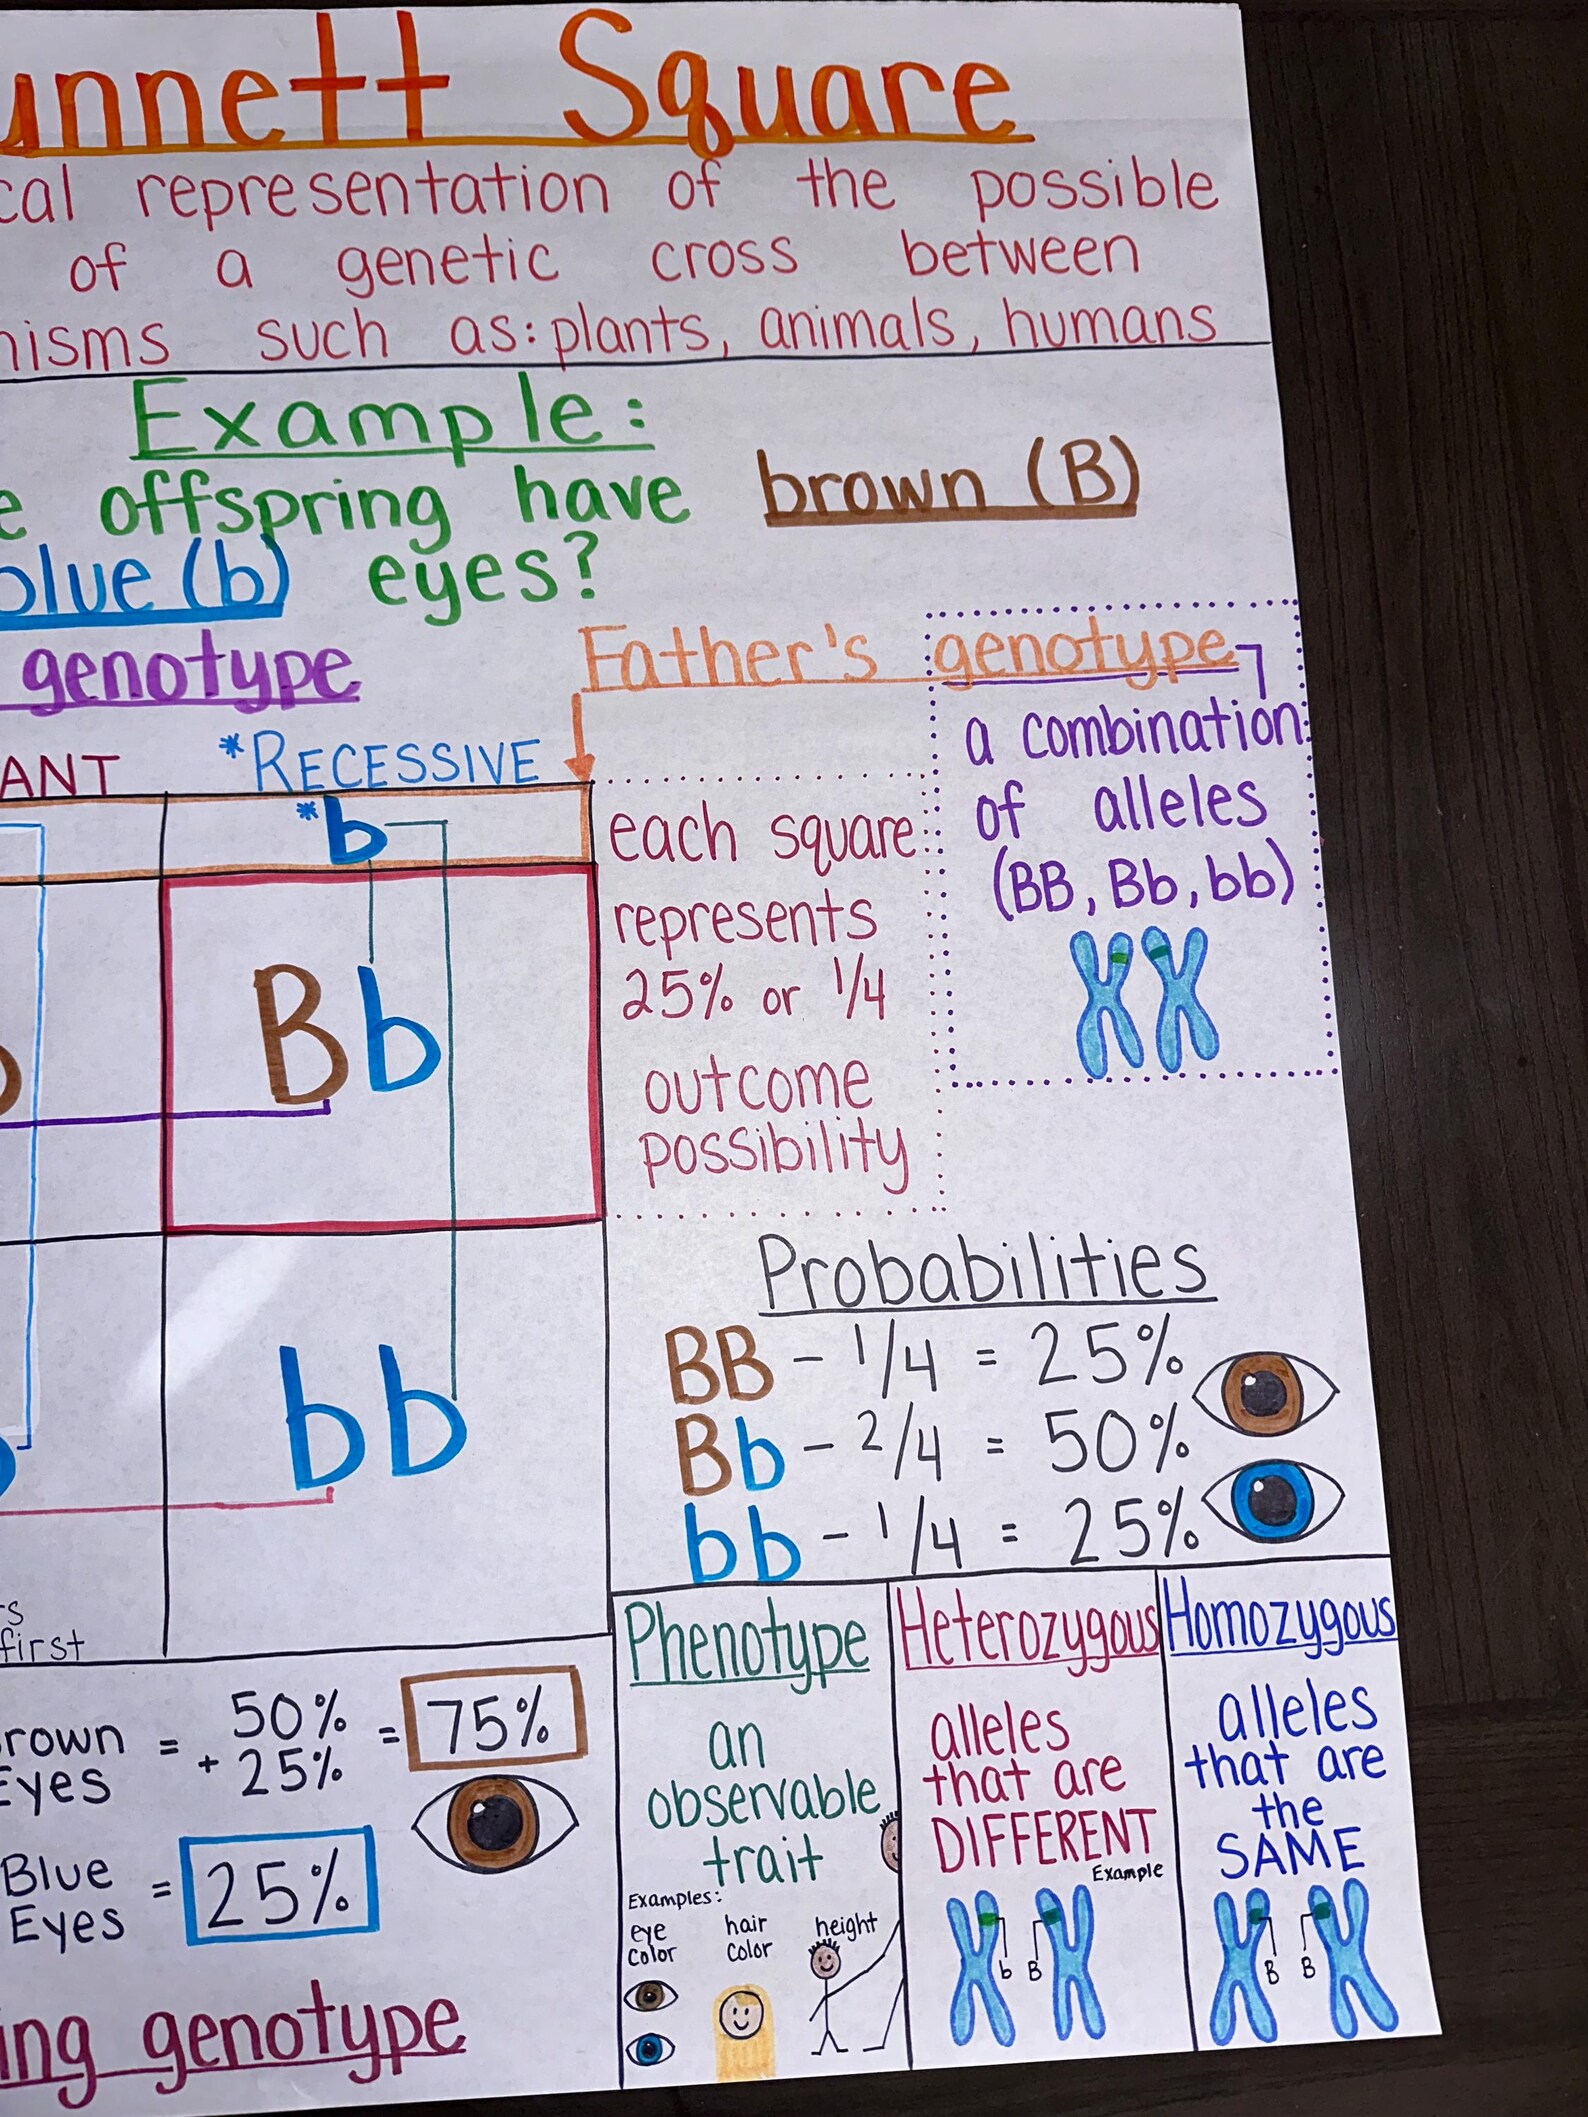 unnett Square
cal representation of the possible
of a genetic cross between
nisms such as: plants, animals, humans
Example:
e offspring have brown (B)
blue (b) eyes?
genotype
Father's genotype
a combination
of alleles
(BB, Bb, bb)
ANT
*RECESSIVE
*b
each square
represents
25% or 1/4
outcome
possibility
Bb
bb
Probabilities
BB - 1/4 = 25%
Bb - 2/4 = 50%
bb - 1/4 = 25%
first
rown
Eyes
= 50%
+ 25%
= 75%
Blue
Eyes
= 25%
ing genotype
Phenotype
an
observable
trait
Examples:
eye
color
hair
color
height
Heterozygous
alleles
that are
DIFFERENT
Example
b B
Homozygous
alleles
that are
the
SAME
B B